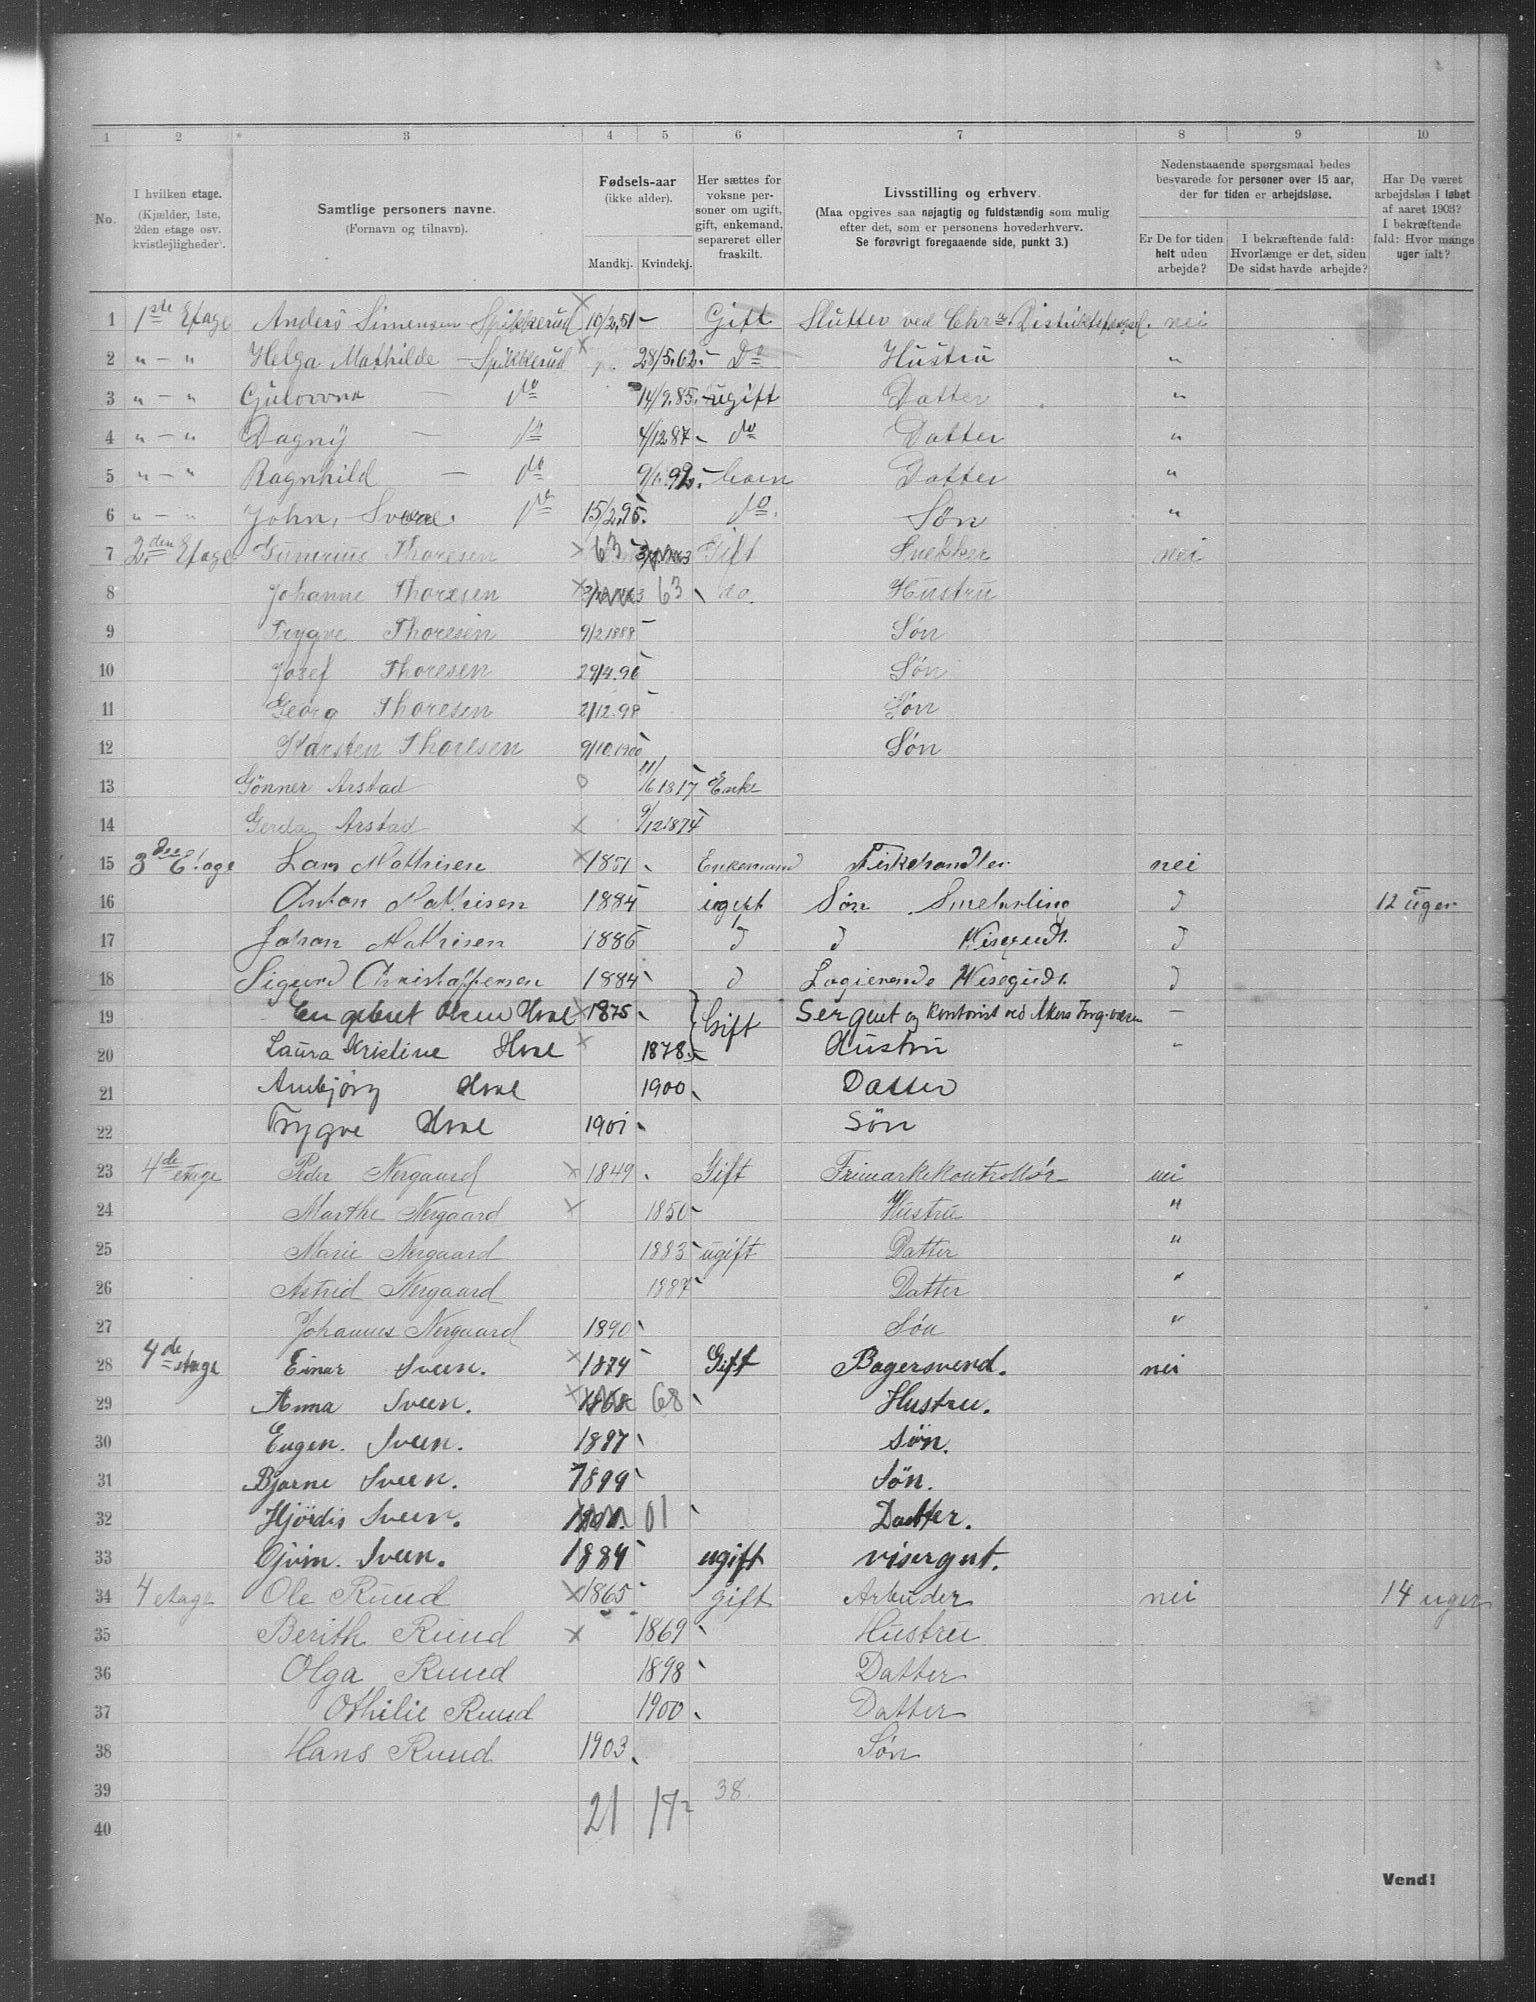 1 2 3 4 5 6 7 8 9 10
No.
I hvilken etage. (Kjælder, 1ste, 2den etage osv. kvistlejligheder).
Samtlige personers navne. (Fornavn og tilnavn).
Fødsels-aar (ikke alder). Mandkj. Kvindekj.
Her sættes for voksne personer om ugift, gift, enkemand, separeret eller fraskilt.
Livsstilling og erhverv. (Maa opgives saa nøjagtig og fuldstændig som mulig efter det, som er personens hovederhverv. Se forøvrigt foregaaende side, punkt 3.)
Nedenstaaende spørgsmaal bedes besvarede for personer over 15 aar, der for tiden er arbejdsløse.
Er De for tiden helt uden arbejde?
I bekræftende fald: Hvorlænge er det, siden De sidst havde arbejde?
Har De været arbejdsløs i løbet af aaret 1903? I bekræftende fald: Hvor mange uger ialt?
1 1ste Etage Anders Simensen Spikkerud x 10/2.51 - Gift Slutter ved Chr. nei
2 " - " Helga Mathilde - Spikkerud x 28/5.62. - Do Hustru "
3 " - " - do 14/9.85. ugift Datter "
4 " - " Dagny - do 4/12 87 - do Datter "
5 " - " Ragnhild - do 92. - barn Datter "
6 " - " John, do 15/2.95. do. Søn "
7 2den Etage Thoresen x 63 - Gift Snekker nei
8 Johanne Thoresen x 63 do. Hustru
9 Trygve Thoresen 9/2 1888 Søn
10 Josef Thoresen 29/4.96 Søn
11 Georg Thoresen 2/12.98 Søn
12 Karsten Thoresen 9/10.1900 Søn
13 Gönner Arstad o 11/6 1817 Enke
14 Gerda Arstad x 9/12.1874
15 3die Etage Lars Mathisen x 1851 Enkemand Fiskehandler nei
16 Anton Mathisen 1884 ugift Søn 12 uger
17 Johan Mathisen 1886 Visergudt.
18 Sigurd Christoffersen 1884 Logierende Visergudt.
19 Engebret Olsen Hval x 1875 Gift Sergent og Kontorist ved Akers -
20 Laura Kristine Hval x 1878. Hustru "
21 Annbjørg Hval 1900 Datter
22 Trygve Hval 1901 Søn
23 4de etage Peder Nergaard x 1849 Gift Frimarkekontrollør nei
24 Marthe Nergaard x 1850 Hustru "
25 Marie Nergaard 1883 ugift Datter "
26 Astrid Nergaard 1887 Datter "
27 Johannes Nergaard 1890 Søn "
28 4de etage Einar Sveen. x 1874 Gift Bagersvend. nei
29 Anna Sveen. x 1868 68 Hustru.
30 Eugen. Sveen. 1897 Søn.
31 Bjarne Sveen. 1899 Søn.
32 Hjördis Sveen. 01 Datter.
33 Sveen. 1884 ugift visergut.
34 4 etage Ole Ruud x 1865 gift Arbeider nei 14 uger
35 Berith Ruud x 1869 Hustru
36 Olga Ruud 1898 Datter
37 Othilie Ruud 1900 Datter
38 Hans Ruud 1903 Søn
39 38.
40 21 17
Vend!